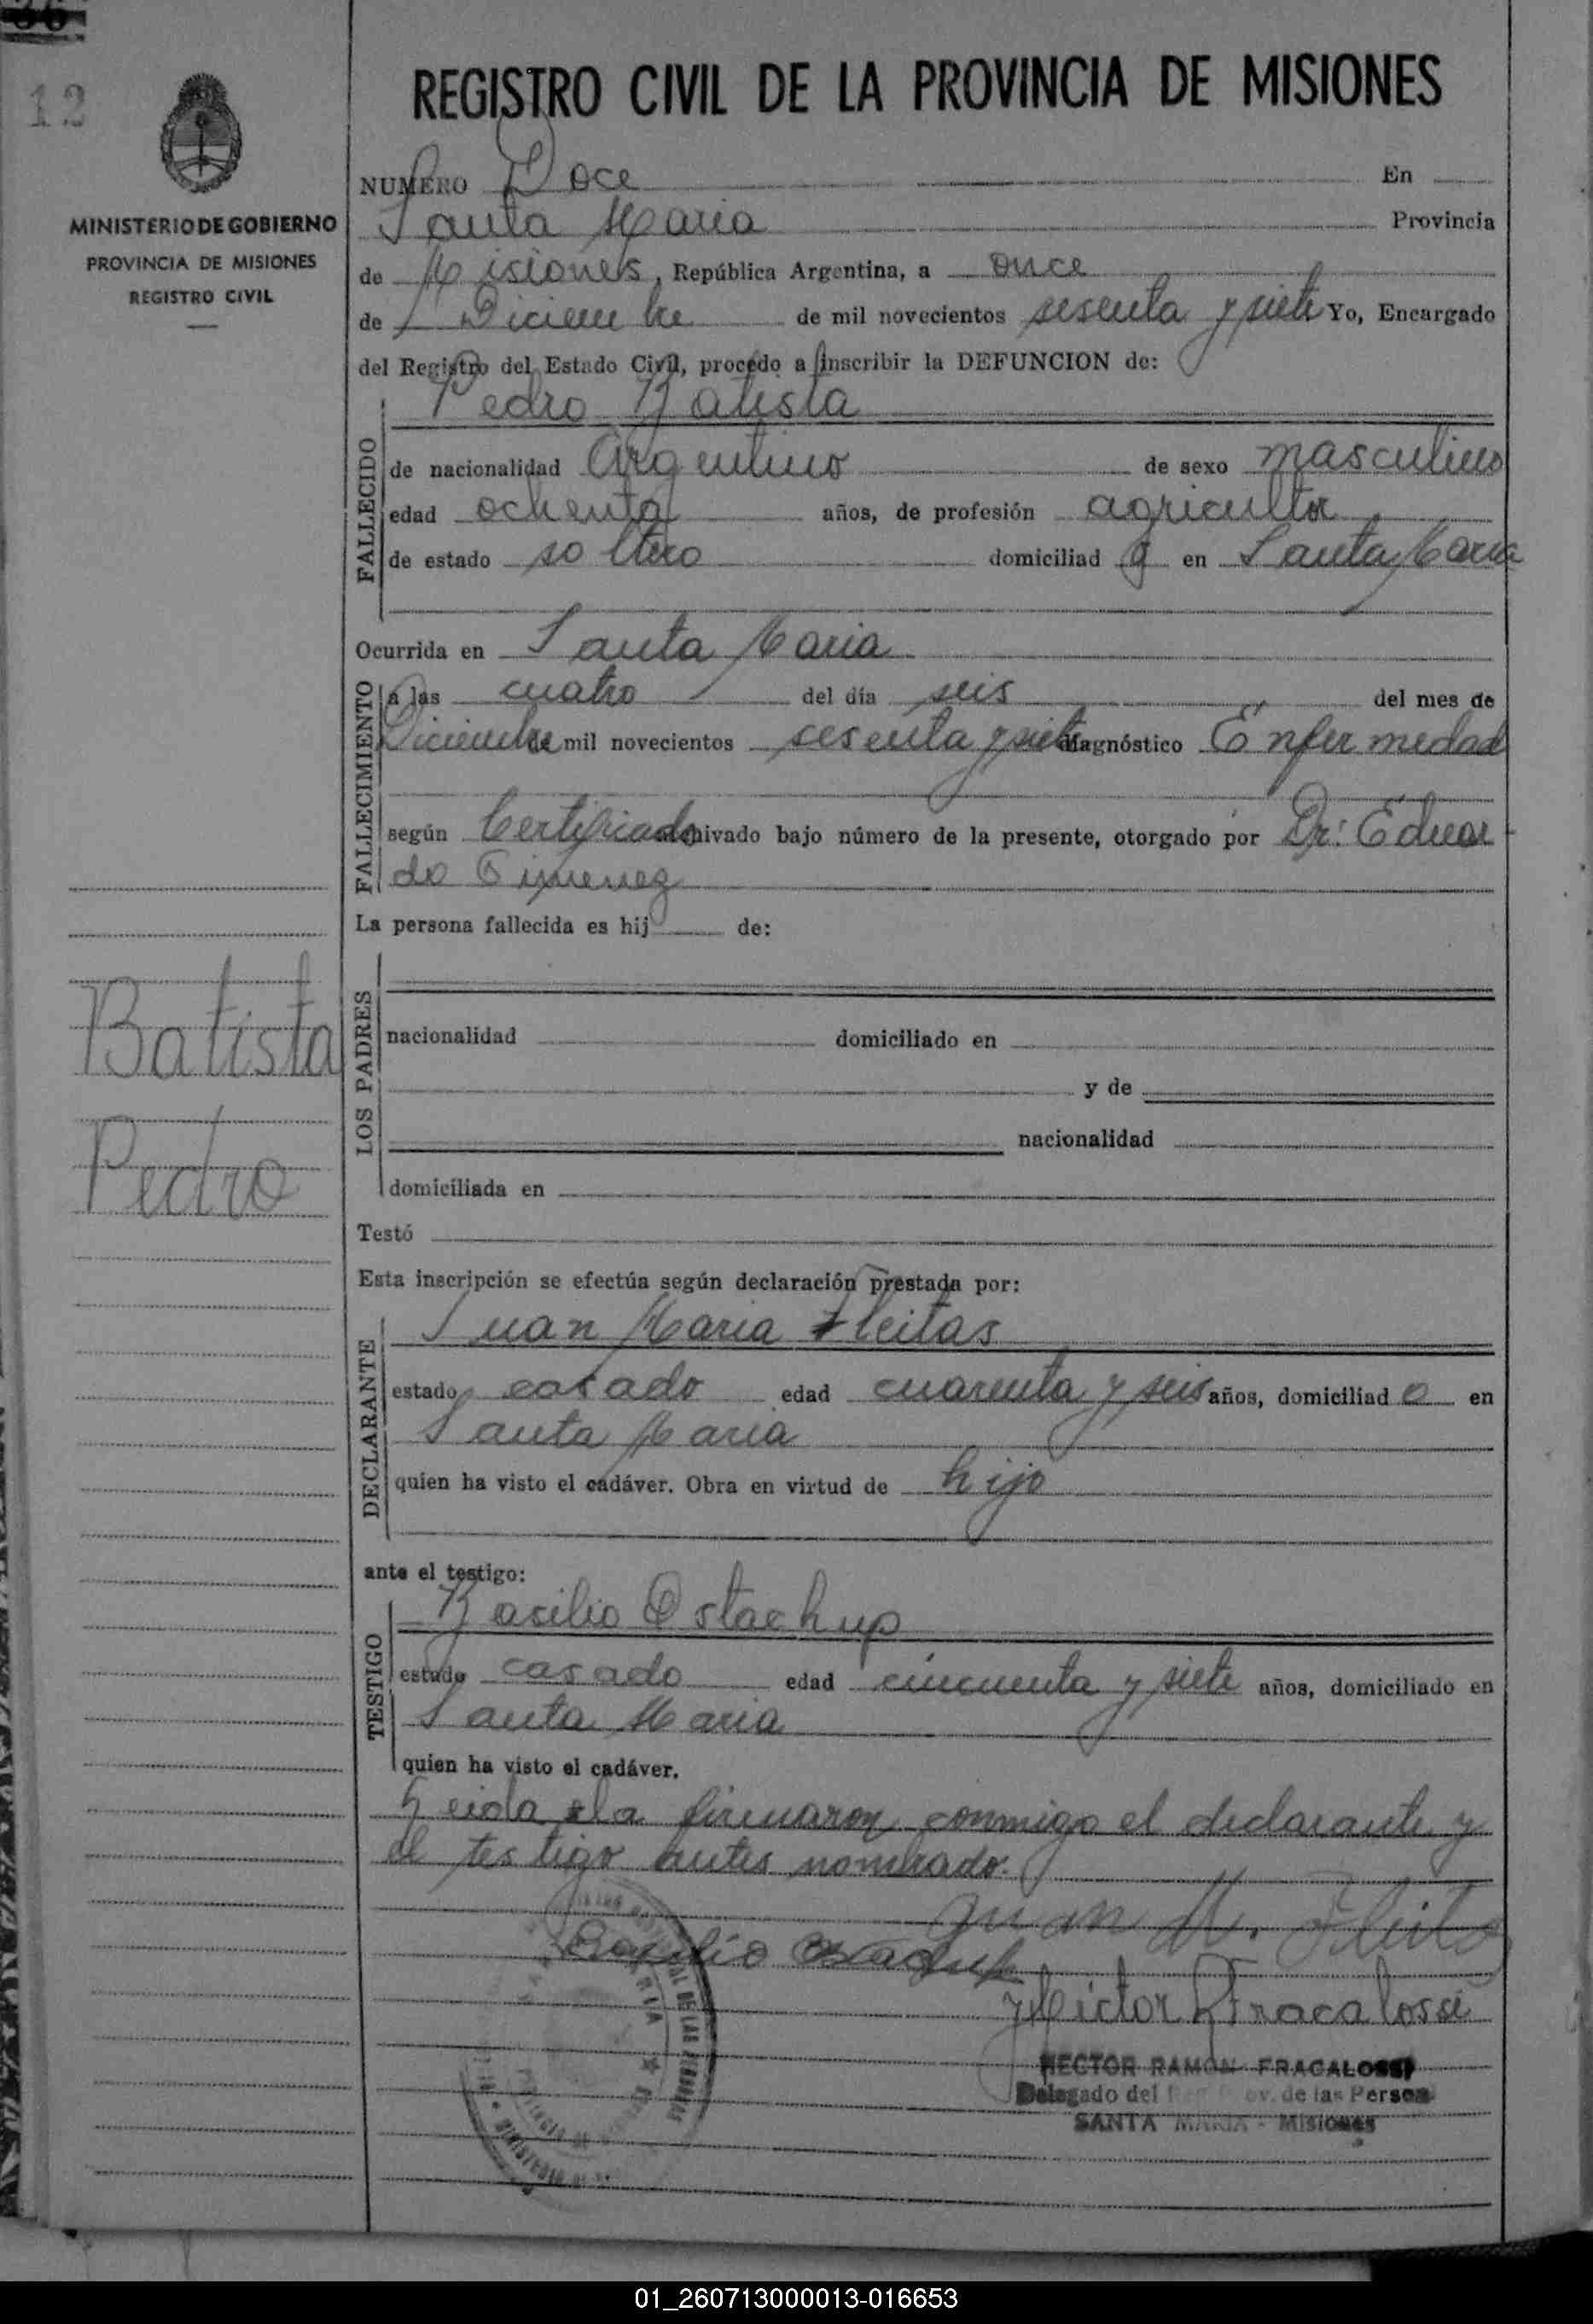 36
12
REGISTRO CIVIL DE LA PROVINCIA DE MISIONES
MINISTERIO DE GOBIERNO
PROVINCIA DE MISIONES
REGISTRO CIVIL
NUMERO Doce En
Santa Maria Provincia
de Misiones, República Argentina, a once
de Diciembre de mil novecientos sesenta y siete Yo, Encargado
del Registro del Estado Civil, procedo a inscribir la DEFUNCION de:
Pedro Batista
FALLECIDO
de nacionalidad Argentino de sexo masculino
edad ochenta años, de profesión agricultor
de estado soltero domiciliad o en Santa Maria
Ocurrida en Santa Maria
FALLECIMIENTO
a las cuatro del día seis del mes de
Diciembre de mil novecientos sesenta y siete diagnóstico Enfermedad
según Certificado archivado bajo número de la presente, otorgado por Dr: Eduar
do Gimenez
La persona fallecida es hij de:
Batista
Pedro
LOS PADRES
nacionalidad domiciliado en
y de
nacionalidad
domiciliada en
Testó
Esta inscripción se efectúa según declaración prestada por:
DECLARANTE
Juan Maria Fleitas
estado casado edad cuarenta y seis años, domiciliad o en
Santa Maria
quien ha visto el cadáver. Obra en virtud de hijo
ante el testigo:
TESTIGO
Basilio Ostachup
estado casado edad cincuenta y siete años, domiciliado en
Santa Maria
quien ha visto el cadáver.
Leida la firmaron conmigo el declarante y
el testigo antes nombrado.
Juan M. Fleitas
Basilio
Hector R Fracalossi
HECTOR RAMON FRACALOSSI
Delegado del de las Person
SANTA MARIA - MISIONES
01_260713000013-016653